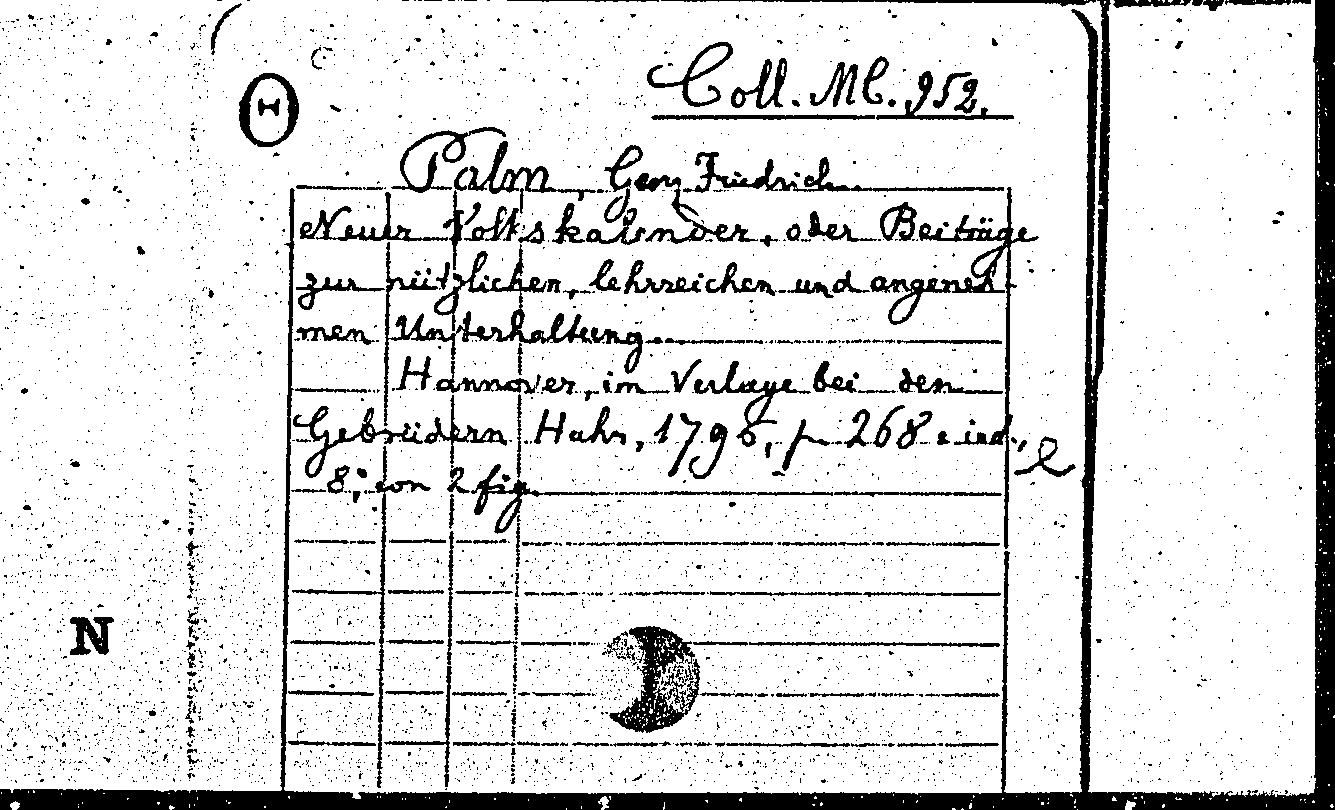 Coll. MC. 952.
Palm, Georg Friedrich.
Neuer Volkskalender, oder Beiträge
zur nützlichen, lehrreichen und angeneh-
men Unterhaltung...
Hannover, im Verlage bei den
Gebrüdern Hahn, 1796, p 268 e ind.,
8º; con 2 fig.
N